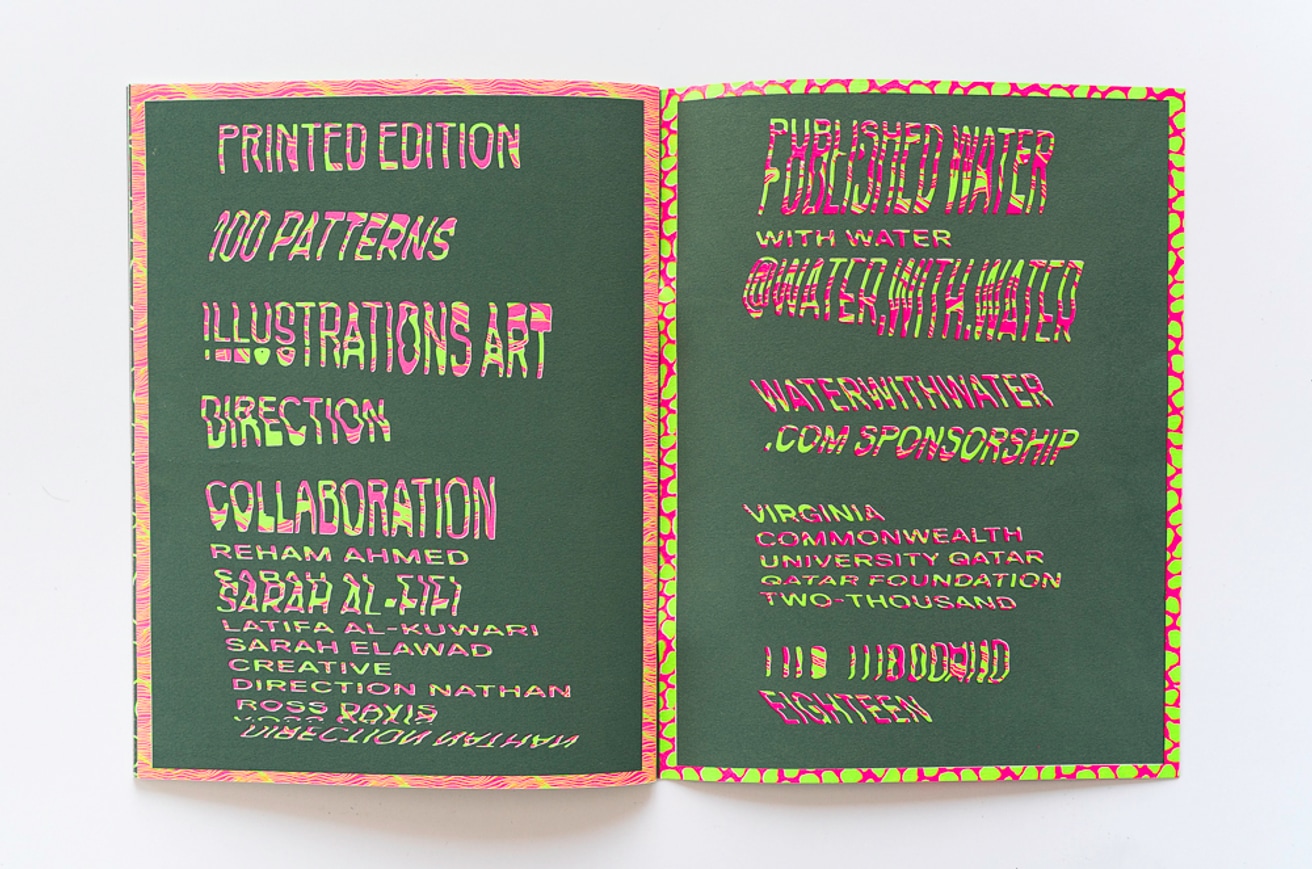 PRINTED EDITION
100 PATTERNS
ILLUSTRATIONS ART
DIRECTION
COLLABORATION
REHAM AHMED
SARAH AL-FIFI
LATIFA AL-KUWARI
SARAH ELAWAD
CREATIVE
DIRECTION NATHAN
ROSS DAVIS
DIRECTION NATHAN
PUBLISHED WATER
WITH WATER
@WATER.WITH.WATER
WATERWITHWATER
.COM SPONSORSHIP
VIRGINIA
COMMONWEALTH
UNIVERSITY QATAR
QATAR FOUNDATION
TWO-THOUSAND
EIGHTEEN